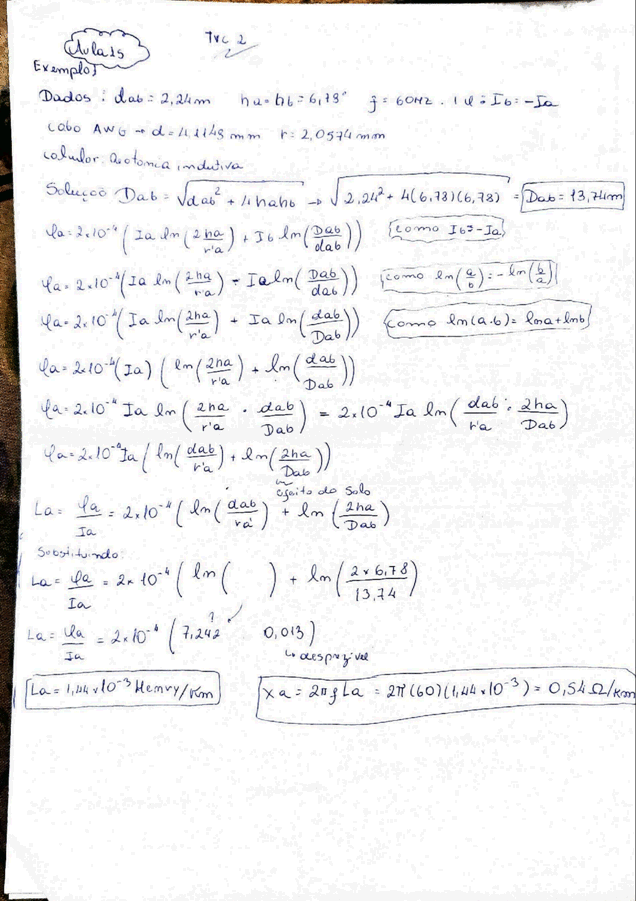 Aula 15
TVC 2
Exemplo 1
Dados: dab = 2,24m ha = hb = 6,78 f = 60Hz. 1φ = Ib = -Ia
cabo AWG → d = 4,1148 mm r = 2,0574 mm
calcular: reatancia indutiva
Solução Dab = √(dab² + 4hahb) → √(2,24² + 4(6,78)(6,78)) = Dab = 13,74m
φa = 2x10⁻⁴ (Ia ln(2ha/r'a) + Ib ln(Dab/dab)) como Ib = -Ia
φa = 2x10⁻⁴ (Ia ln(2ha/r'a) - Ia ln(Dab/dab)) como ln(a/b) = -ln(b/a)
φa = 2x10⁻⁴ (Ia ln(2ha/r'a) + Ia ln(dab/Dab)) como ln(a.b) = lna + lnb
φa = 2x10⁻⁴ (Ia) (ln(2ha/r'a) + ln(dab/Dab))
φa = 2x10⁻⁴ Ia ln(2ha/r'a · dab/Dab) = 2x10⁻⁴ Ia ln(dab/r'a · 2ha/Dab)
φa = 2x10⁻⁴ Ia (ln(dab/r'a) + ln(2ha/Dab))
efeito do solo
La = φa/Ia = 2x10⁻⁴ (ln(dab/ra') + ln(2ha/Dab)
Substituindo:
La = φa/Ia = 2x10⁻⁴ (ln( ) + ln(2x6,78/13,74)
?
La = φa/Ia = 2x10⁻⁴ (7,242 0,013)
↳ desprezível
La = 1,44x10⁻³ Henry/Km Xa = 2πfLa = 2π(60)(1,44x10⁻³) = 0,54 Ω/km